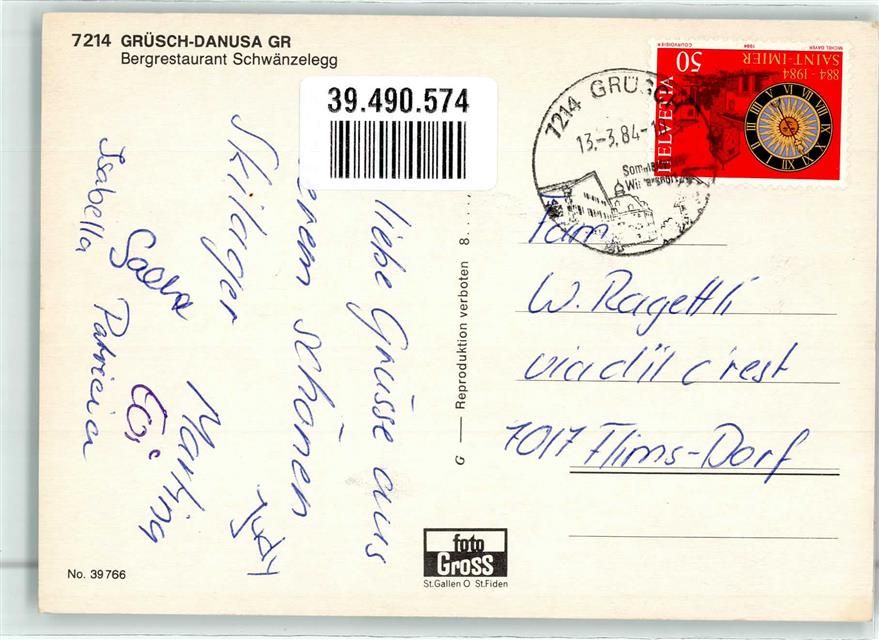 7214 GRÜSCH-DANUSA GR
Bergrestaurant Schwänzelegg
39.490.574
liebe Grüsse aus
schönen
Skilager
Martina
Judy
Isabella Patricia
No. 39766
G — Reproduktion verboten 8. . . . .
foto
Gross
St.Gallen O St.Fiden
7214 GRÜSCH
13.-3.84-1
HELVETIA
50
884-1984
SAINT-IMIER
COURVOISIER 1984 MICHEL GAYER
Fam
W. Ragettli
via d'il crest
7017 Flims-Dorf